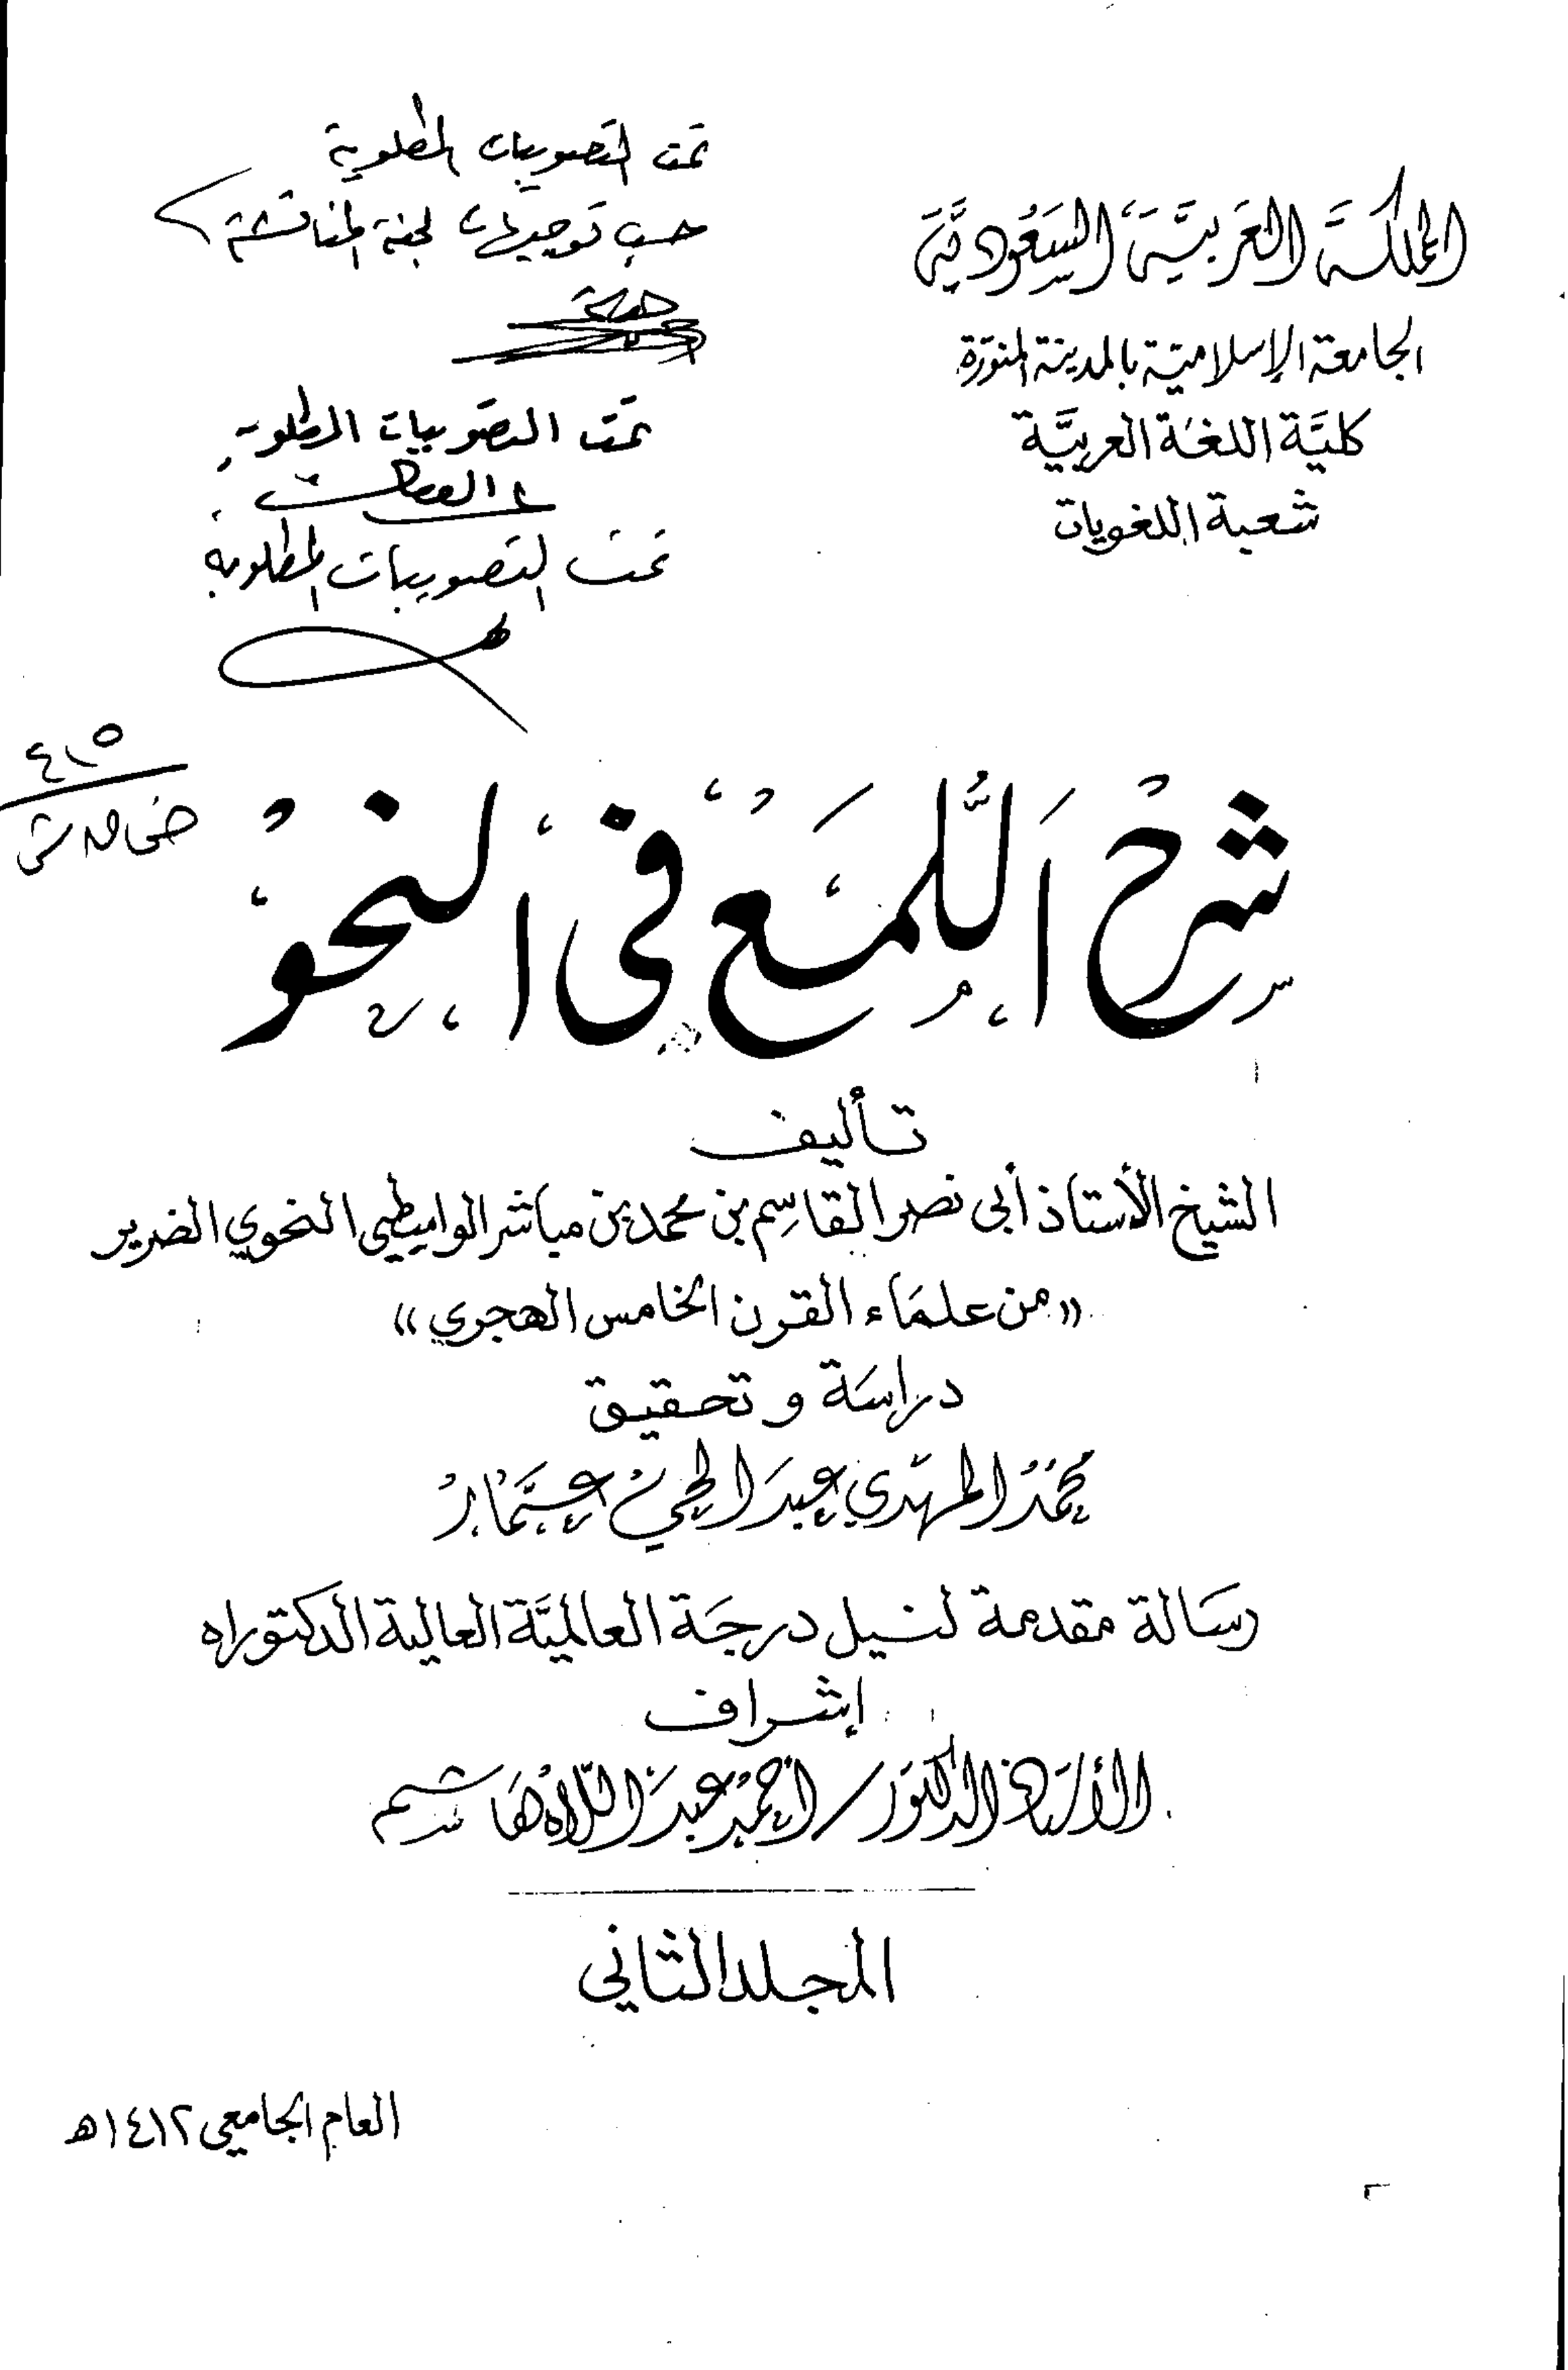 المملكة العربية السعودية
الجامعة الإسلامية بالمدينة المنورة
كلية اللغة العربية
شعبة اللغويات
تمت التصويبات المطلوبة
حسب توجيهات لجنة المناقشة
تمت التصويبات المطلوبة
تمت التصويبات المطلوبة
٤١٥
شرح اللمع في النحو
تأليف
الشيخ الأستاذ أبي نصر القاسم بن محمد بن مباشر الواسطي النحوي الضرير
«من علماء القرن الخامس الهجري»
دراسة وتحقيق
محمد المهدي عبد الحي عمار
رسالة مقدمة لنيل درجة العالمية العالية الدكتوراه
إشراف
الأستاذ الدكتور / أحمد عبد اللاه هاشم
المجلد الثاني
العام الجامعي ١٤١٢هـ